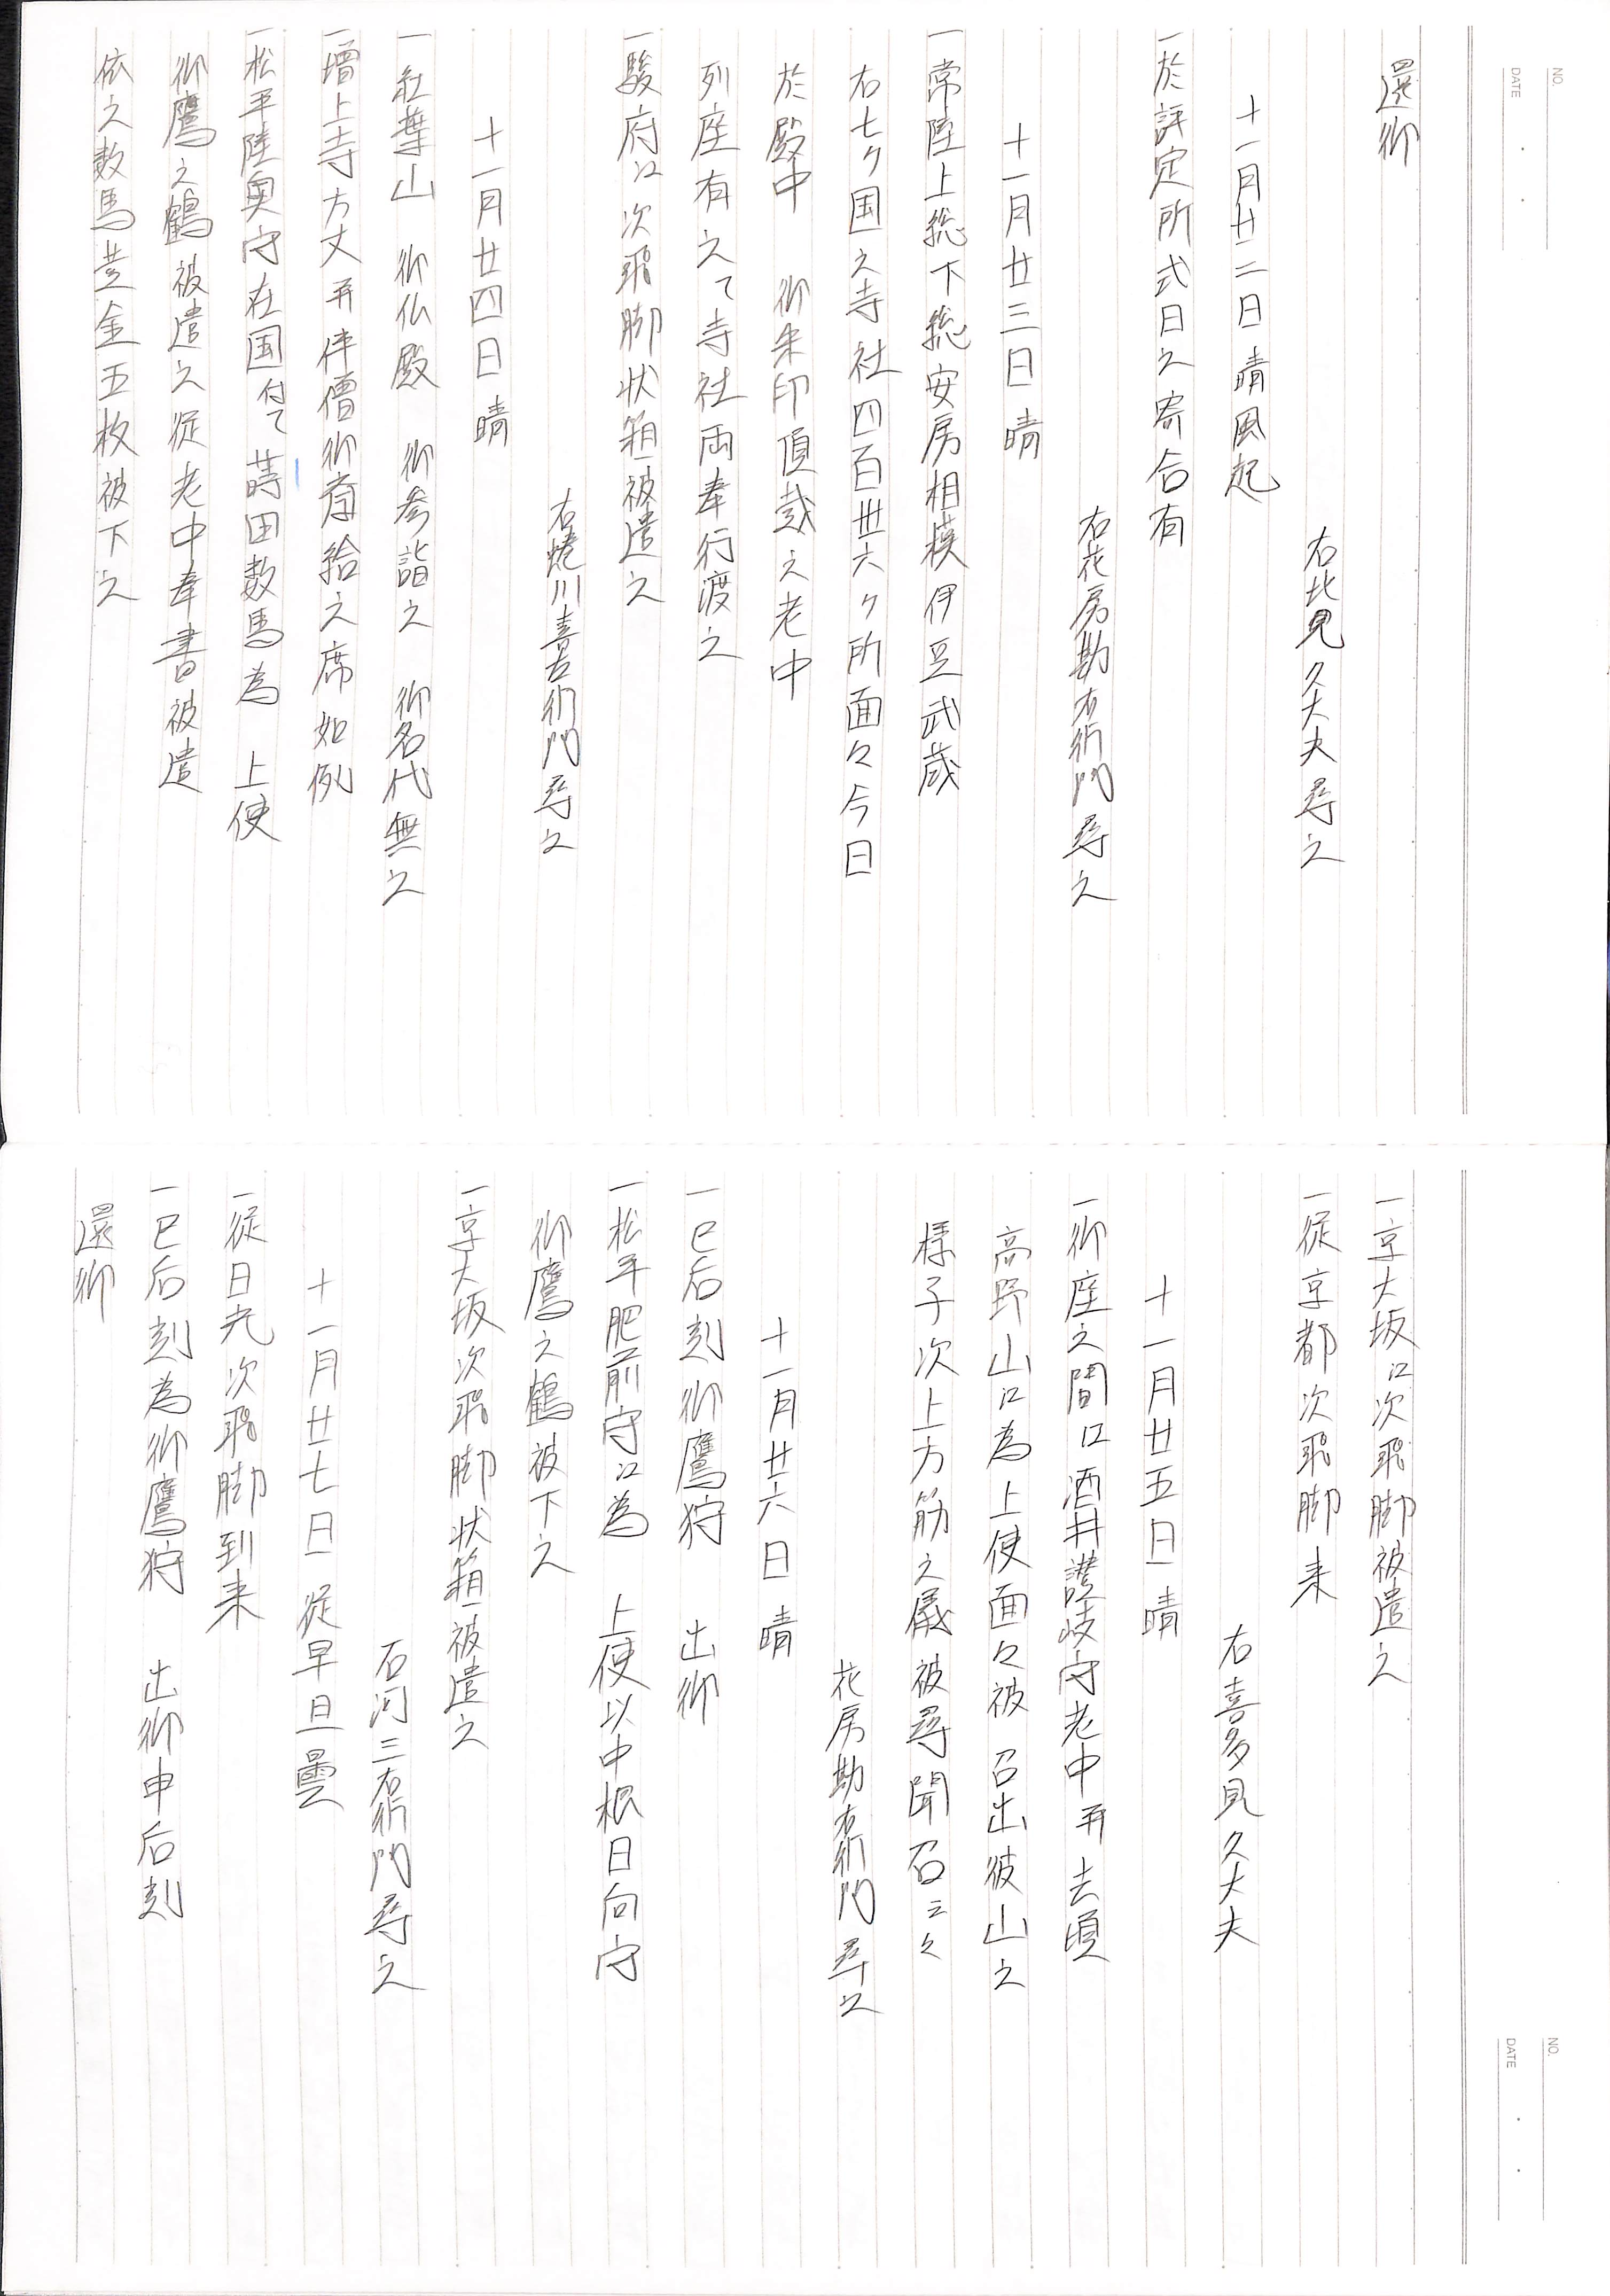 還御
右北見久大夫尋之
十一月廿二日晴風起
一於評定所式日之寄合有
右花房勘右衛門尋之
十一月廿三日 晴
一常陸上総下総安房相模伊豆武蔵
右七ケ国之寺社四百卅六ケ所面々今日
於殿中 御朱印頂戴之老中
列座有之て寺社両奉行渡之
一駿府江次飛脚状箱被遣之
右蜷川喜右衛門尋之
十一月廿四日 晴
一紅葉山 御仏殿 御参詣之 御名代無之
一増上寺方丈并伴僧御斎給之席如例
一松平陸奥守在国付て蒔田数馬為 上使
御鷹之鶴被遣之従老中奉書被遣
依之数馬黄金五枚被下之
一京大坂江次飛脚被遣之
一従京都次飛脚来
右喜多見久大夫
十一月廿五日 晴
一御座之間江酒井讃岐守老中并去頃
高野山江為上使面々被召出彼山之
様子次上方筋之儀被尋聞召云々
花房勘右衛門尋之
十一月廿六日 晴
一巳后刻御鷹狩 出御
一松平肥前守江為 上使以中根日向守
御鷹之鶴被下之
一京大坂次飛脚状箱被遣之
石河三右衛門尋之
十一月廿七日 従早旦曇
一従日光次飛脚到来
一巳后刻為御鷹狩 出御申后刻
還御
NO.
DATE
NO.
DATE